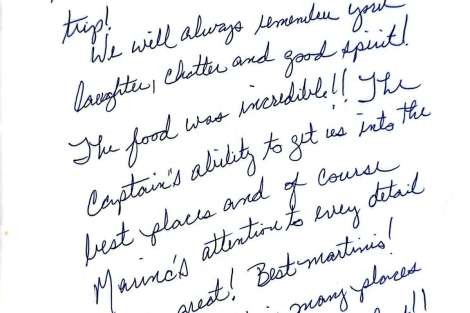 trip!
We will always remember your
laughter, chatter and good spirit!
The food was incredible!! The
Captain's ability to get us into the
best places and of course
Marine's attention to every detail
great! Best martinis!
in many places